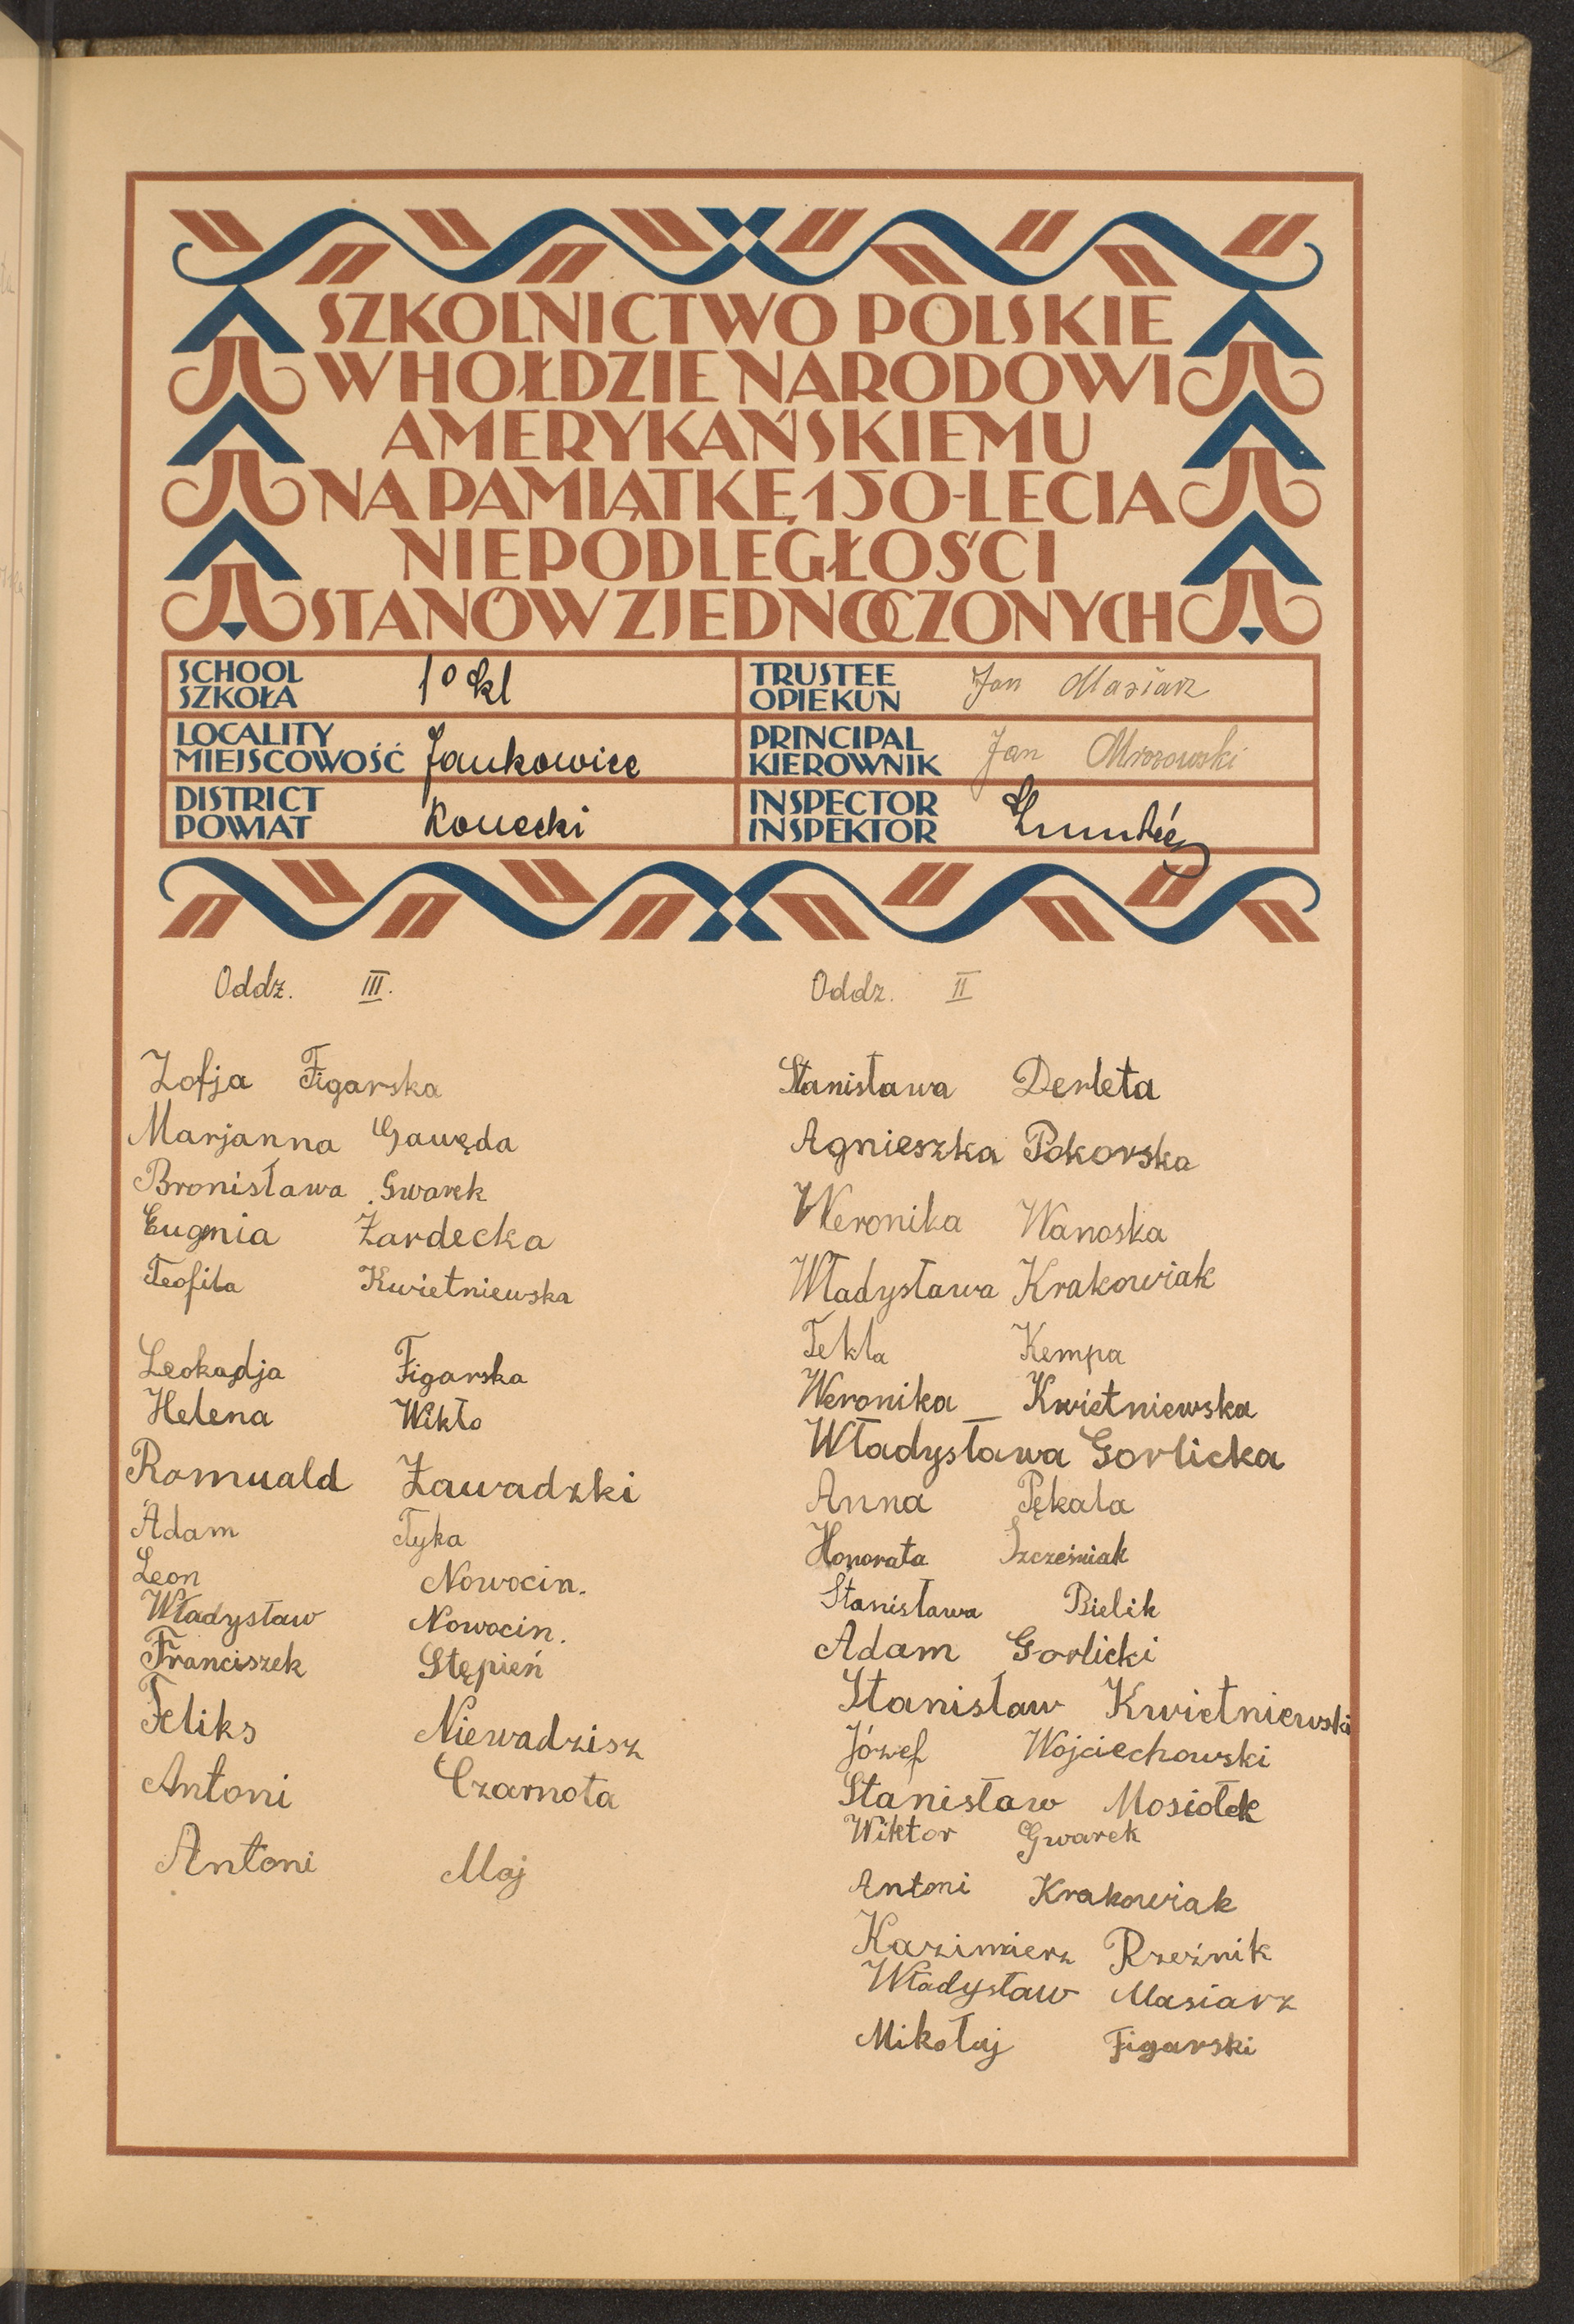 SZKOLNICTWO POLSKIE
W HOŁDZIE NARODOWI
AMERYKAŃSKIEMU
NA PAMIĄTKĘ 150-LECIA
NIEPODLEGŁOŚCI
STANÓW ZJEDNOCZONYCH
SCHOOL
SZKOŁA
1º kl
TRUSTEE
OPIEKUN
Jan Masiarz
LOCALITY
MIEJSCOWOŚĆ
Jankowice
PRINCIPAL
KIEROWNIK
Jan Mrozowski
DISTRICT
POWIAT
Konecki
INSPECTOR
INSPEKTOR
Oddz. III.
Zofja Figarska
Marjanna Gawęda
Bronisława Gwarek
Eugenia Żardecka
Teofila Kwietniewska
Leokadja Figarska
Helena Wikło
Romuald Zawadzki
Adam Tyka
Leon Nowocin.
Władysław Nowocin.
Franciszek Stępień
Feliks Niewadzisz
Antoni Czarnota
Antoni Maj
Oddz. II
Stanisława Derleta
Agnieszka Pokorska
Weronika Wanoska
Władysława Krakowiak
Tekla Kempa
Weronika Kwietniewska
Władysława Gorlicka
Anna Pękala
Honorata Szcześniak
Stanisława Bielik
Adam Gorlicki
Stanisław Kwietniewski
Józef Wojciechowski
Stanisław Mosiołek
Wiktor Gwarek
Antoni Krakowiak
Kazimierz Rzeźnik
Władysław Masiarz
Mikołaj Figarski